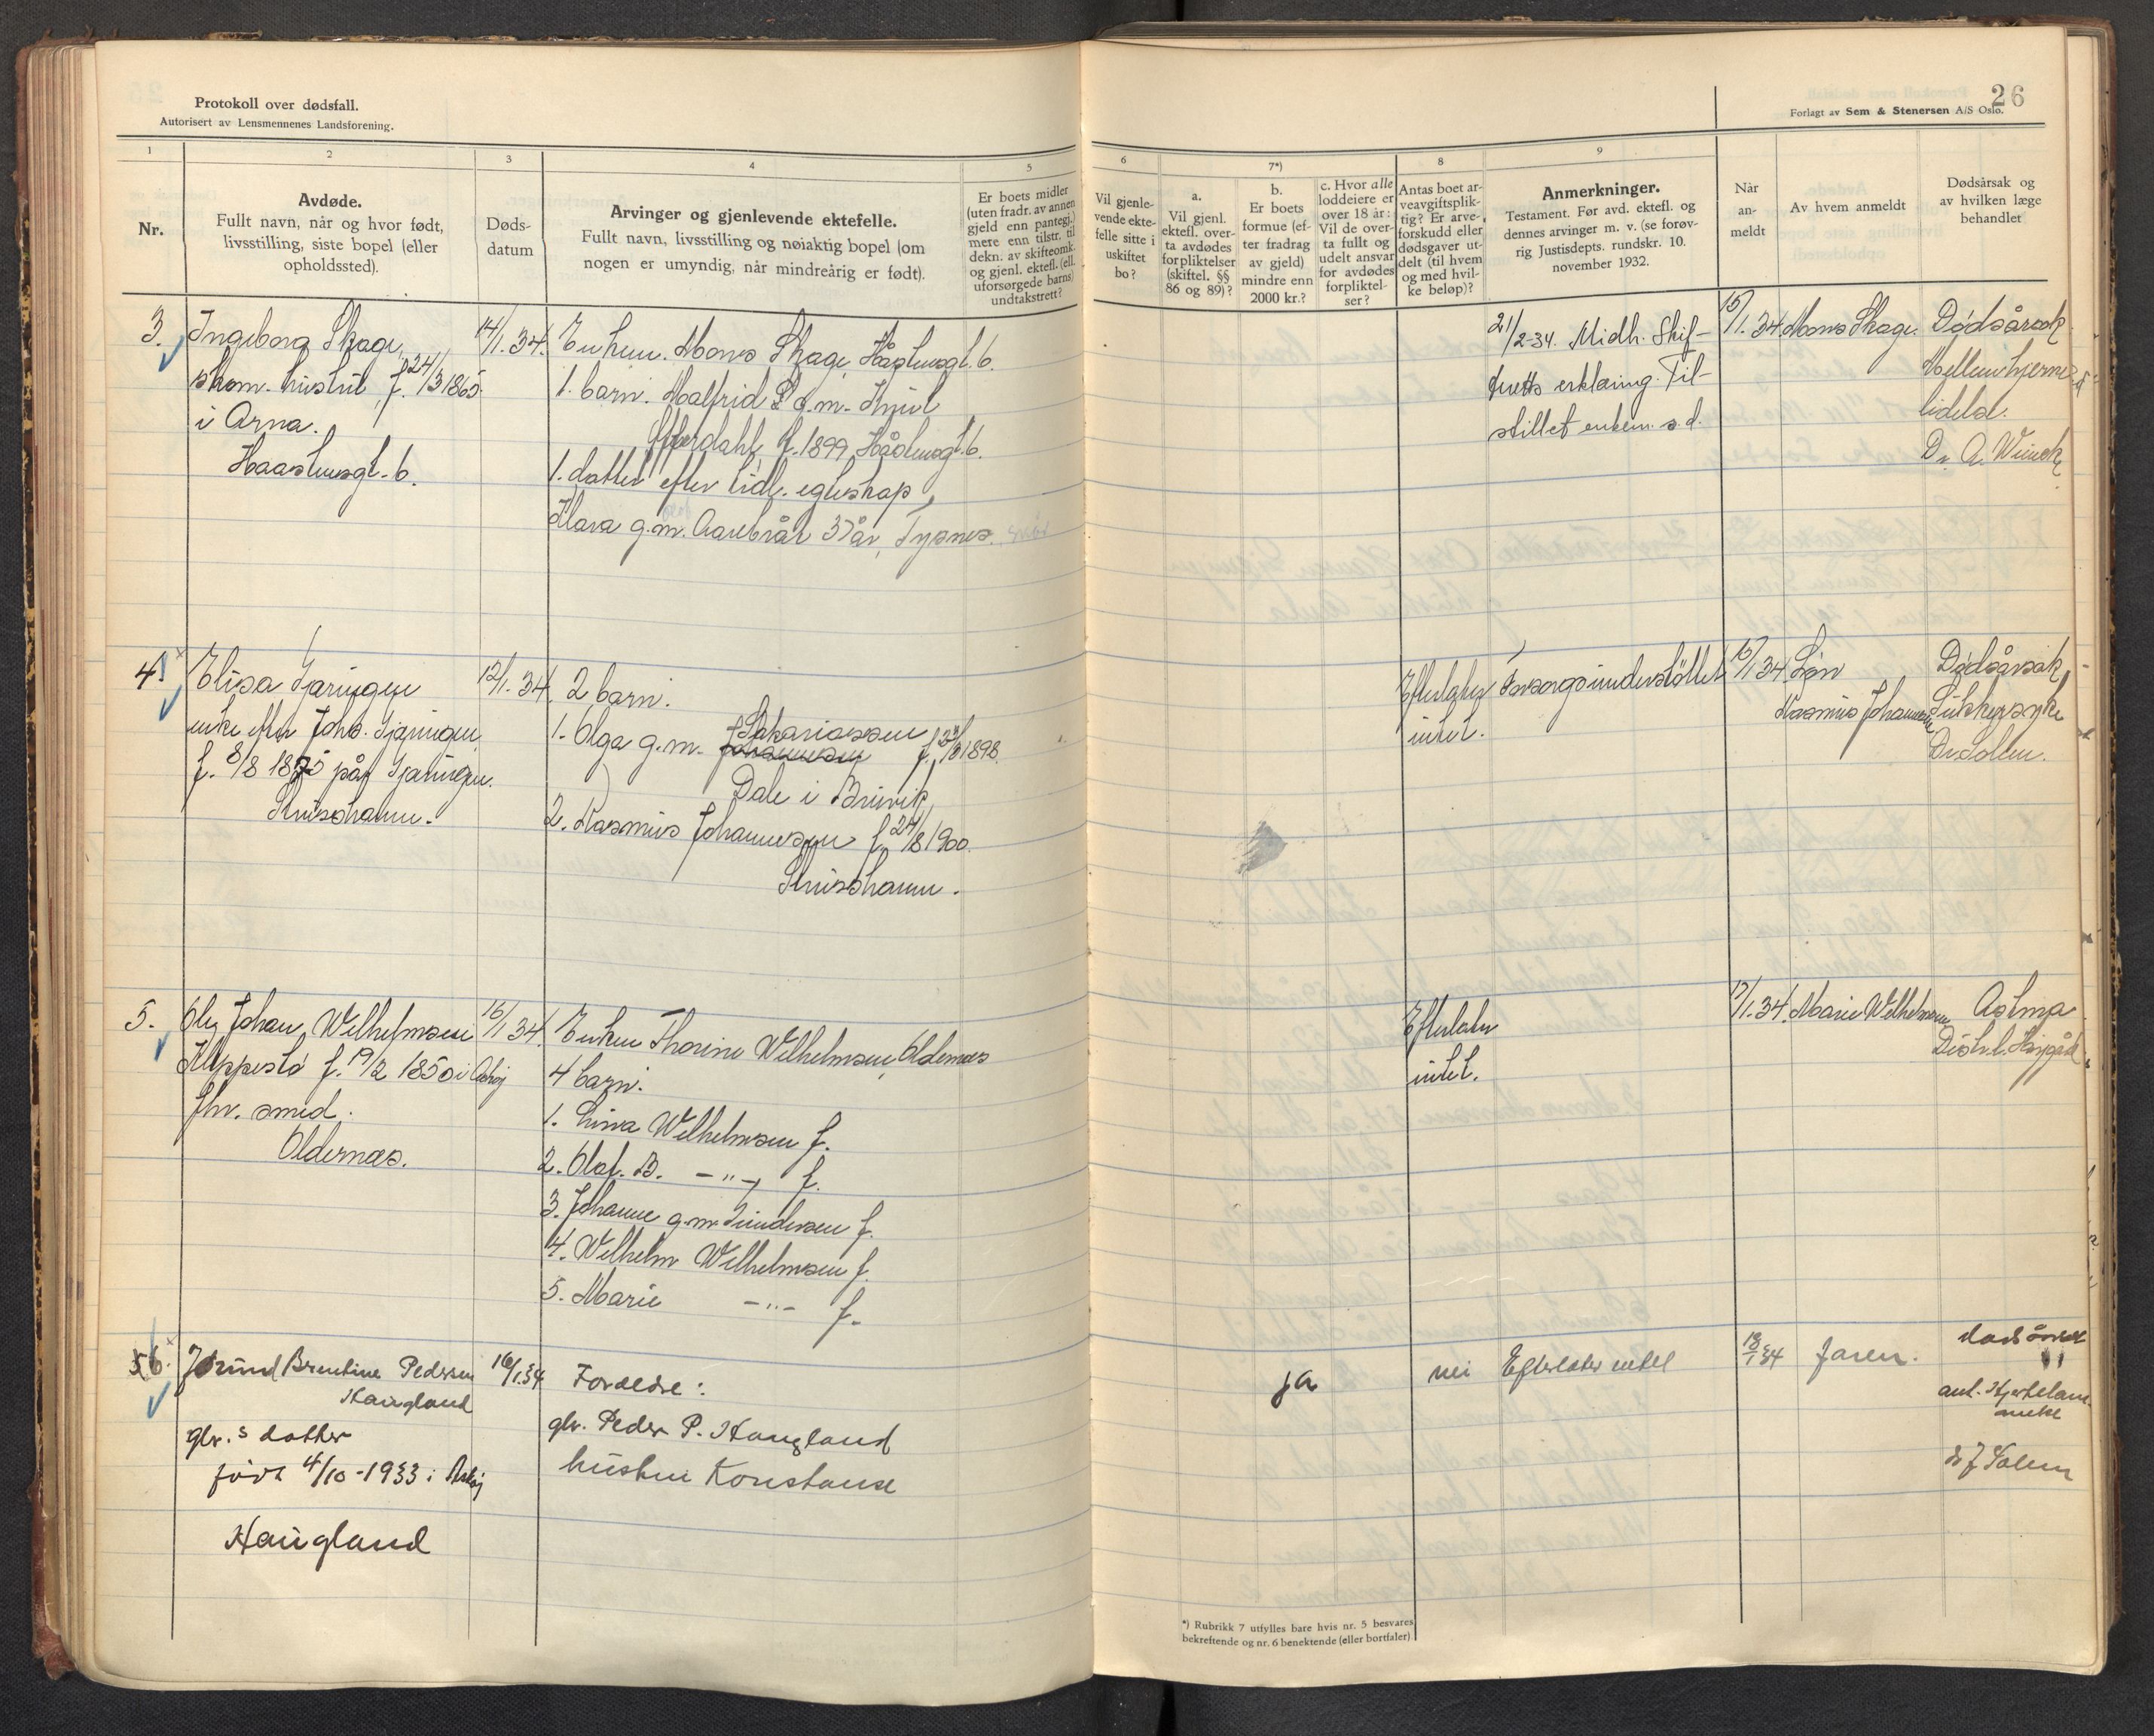 Protokoll over dødsfall.
Autorisert av Lensmennenes Landsforening.
26
Forlagt av Sem & Stenersen A/S Oslo.
1
Nr.
2
Avdøde.
Fullt navn, når og hvor født,
livsstilling, siste bopel (eller
opholdssted).
3
Døds-
datum
4
Arvinger og gjenlevende ektefelle.
Fullt navn, livsstilling og nøiaktig bopel (om
nogen er umyndig, når mindreårig er født).
5
Er boets midler
(uten fradr. av annen
gjeld enn pantegj.)
mere enn tilstr. til
dekn. av skifteomk.
og gjenl. ektefl. (ell.
uforsørgede barns)
undtakstrett?
6
Vil gjenle-
vende ekte-
felle sitte i
uskiftet
bo?
7*)
a.
Vil gjenl.
ektefl. over-
ta avdødes
forpliktelser
(skiftel. §§
86 og 89)?
b.
Er boets
formue (ef-
ter fradrag
av gjeld)
mindre enn
2000 kr.?
c. Hvor alle
loddeiere er
over 18 år:
Vil de over-
ta fullt og
udelt ansvar
for avdødes
forpliktel-
ser?
8
Antas boet ar-
veavgiftsplik-
tig? Er arve-
forskudd eller
dødsgaver ut-
delt (til hvem
og med hvil-
ke beløp)?
9
Anmerkninger.
Testament. Før avd. ektefl. og
dennes arvinger m. v. (se forøv-
rig Justisdepts. rundskr. 10.
november 1932.
Når
an-
meldt
Av hvem anmeldt
Dødsårsak og
av hvilken læge
behandlet
3.
Ingeborg Skage,
skom. hustru, f. 24/3 1865
i Arna.
14/1.34.
Enkem. Mons Skage
1. barn. Malfrid S g.m.
f. 1899
1. datter efter tidl. egteskap,
Klara g.m. 37 år, Tysnes.
21/2-34. Midh. Skif-
teretts erklæring. Til-
stillet enkem. s.d.
15/1.34.
Mons Skage.
Dødsårsak
lidelse.
Dr. A.
4.
Elisa
enke efter Johs.
f. 8/8 på
12/1.34.
2 barn.
1. Olga g.m. Sakariassen
f. 1898.
Dale i Bruvik
2. Rasmus Johannesen f. 24/8 1900.
Efterlater
intet.
Forsorgsunderstøttet
15/1 34
Søn
Rasmus Johannesen
Dødsårsak
Sukkersyke
Dr Solem.
5.
Ole Johan Wilhelmsen
Kleppestø f. 19/2 1850 i Askøy
fhv. smed.
Oldernes.
16/1 34.
Enken Thorine Wilhelmsen, Oldernes
4 barn.
1. Lina Wilhelmsen f.
2. Olaf. B. —"— f.
3. Johanne g.m. f.
4. Wilhelm Wilhelmsen f.
5. Marie —"— f.
Efterlater
intet.
17/1.34.
Marie Wilhelmsen
Astma
6.
Jorund Brentine Pedersen
Haugland
gbr.s datter
født 4/10-1933 i Askøy
Haugland
16/1.34
Foreldre:
gbr. Peder P. Haugland
hustru Konstanse
ja
nei
Efterlater intet
18/1 34
faren.
dødsårsak
ant. Hjertelam
melse
dr J Solem
*) Rubrikk 7 utfylles bare hvis nr. 5 besvares
bekreftende og nr. 6 benektende (eller bortfaler)